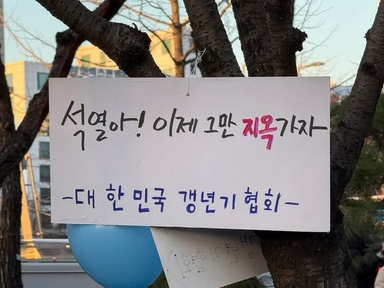 석열아! 이제 그만 지옥가자
-대한민국 갱년기 협회-